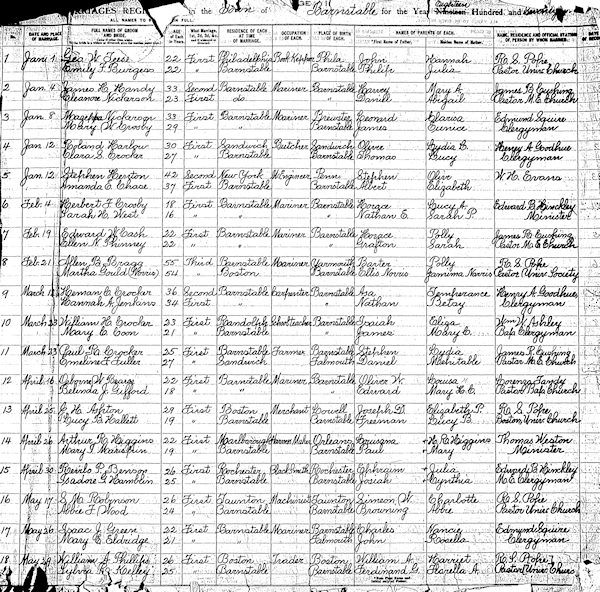 MARRIAGES REGISTERED in the Town of Barnstable for the Year Eighteen Hundred and Seventy
ALL NAMES TO BE WRITTEN IN FULL
DATE AND PLACE OF MARRIAGE. FULL NAMES OF GROOM AND BRIDE. AGE OF EACH in Years What Marriage, 1st, 2d, 3d, &c. RESIDENCE OF EACH AT TIME OF MARRIAGE. OCCUPATION. PLACE OF BIRTH OF EACH. NAMES OF PARENTS OF EACH. First Name of Father. Maiden Name of Mother. NAME, RESIDENCE AND OFFICIAL STATION OF PERSON BY WHOM MARRIED. DATE OF RECORD
1 Jan 1 Geo W. 22 First Philadelphia Book Keeper Phila John Hannah R. S. Pope
Emily F. Burgess 22 " Barnstable Barnstable Philip Julia Pastor Univ Church
2 Jan 4 James H. Handy 33 Second Barnstable Mariner Barnstable Harvey Mary A. James R. Cushing
Eleanor Nickerson 23 First do Daniel Abigail Pastor M. E. Church
3 Jan 8 Nickerson 33 First Barnstable Mariner Brewster Leonard Clarissa Edmund Squire
Mary W. Crosby 29 " " Barnstable James Eunice Clergyman
4 Jan 12 Roland Harlow 30 First Sandwich Butcher Sandwich Oliver Lydia B. Henry A. Goodhue
Clara S. Crocker 27 " Barnstable Barnstable Thomas Lucy Clergyman
5 Jan 12 Stephen 42 Second New York Engineer Penn Stephen Olive W. H. Evans
Amanda E. Chase 37 First Barnstable Barnstable Albert Elizabeth
6 Feb 4 Herbert F. Crosby 18 First Barnstable Mariner Barnstable Horace Lucy A. Edward B. Hinckley
Sarah H. West 16 " " " Nathan E. Sarah P. Minister
7 Feb 19 Edward W. Cash 22 First Barnstable Mariner Barnstable Horace Polly James R. Cushing
Ellen K. Phinney 22 " " " Grafton Sarah Pastor M. E. Church
8 Feb 21 Allen B. Bragg 55 Third Barnstable Mariner Yarmouth Barter Polly R. S. Pope
Martha Gould (Norris) 54 " Boston Barnstable Ellis Norris Jemima Norris Pastor Univ. Society
9 March 13 Heman E. Crocker 36 Second Barnstable Carpenter Barnstable Asa Temperance Henry A. Goodhue
Hannah A. Jenkins 34 First " " Nathan Betsy Clergyman
10 March 23 William H. Crocker 23 First Randolph School teacher Barnstable Isaiah Eliza Wm W. Ashley
Mary E. Coon 21 " Barnstable " James Mary E. Bap. Clergyman
11 March 23 Paul R. Crocker 25 First Barnstable Farmer Barnstable Stephen Lydia James R. Cushing
Emeline F. Fuller 27 " Sandwich Falmouth Daniel Mehitable Pastor M. E. Church
12 April 16 Osborn W. Bearse 22 First Barnstable Mariner Barnstable Oliver W. Louisa Lorenzo Tandy
Belinda J. Gifford 18 " " " Edward Mary H. E. Pastor Bap. Church
13 April 25 G. H. Upton 29 First Boston Merchant Lowell Joseph D. Elizabeth P. R. S. Pope
Lucy B. Hallett 19 " Barnstable Barnstable Freeman Lucy B. Boston, Univ. Church
14 April 26 Arthur H. Higgins 22 First Marlborough Harness Maker Orleans H. R. Higgins Thomas Weston
Mary T. 19 " Barnstable Barnstable Paul Mary Minister
15 April 30 F. Benson 26 First Rochester Blacksmith Rochester Ephraim Julia Edward B. Hinckley
Isadore G. Hamblin 25 " Barnstable Barnstable Josiah Cynthia M. E. Clergyman
16 May 17 S. M. Robinson 26 First Taunton Machinist Taunton Simeon W. Charlotte R. S. Pope
Abbie F. Wood 24 " Barnstable Barnstable Browning Abbie Pastor Univ Church
17 May 26 Isaac L. Green 22 First Barnstable Mariner Barnstable Charles Nancie Edmund Squire
Mary E. Eldridge 21 " " Falmouth John Rosella Clergyman.
18 May 29 William A. Phillips 26 First Boston Trader Boston William A. Harriet R. S. Pope
R. Kelley 25 " Barnstable Barnstable Ferdinand G. Florella A. Pastor Univ Church